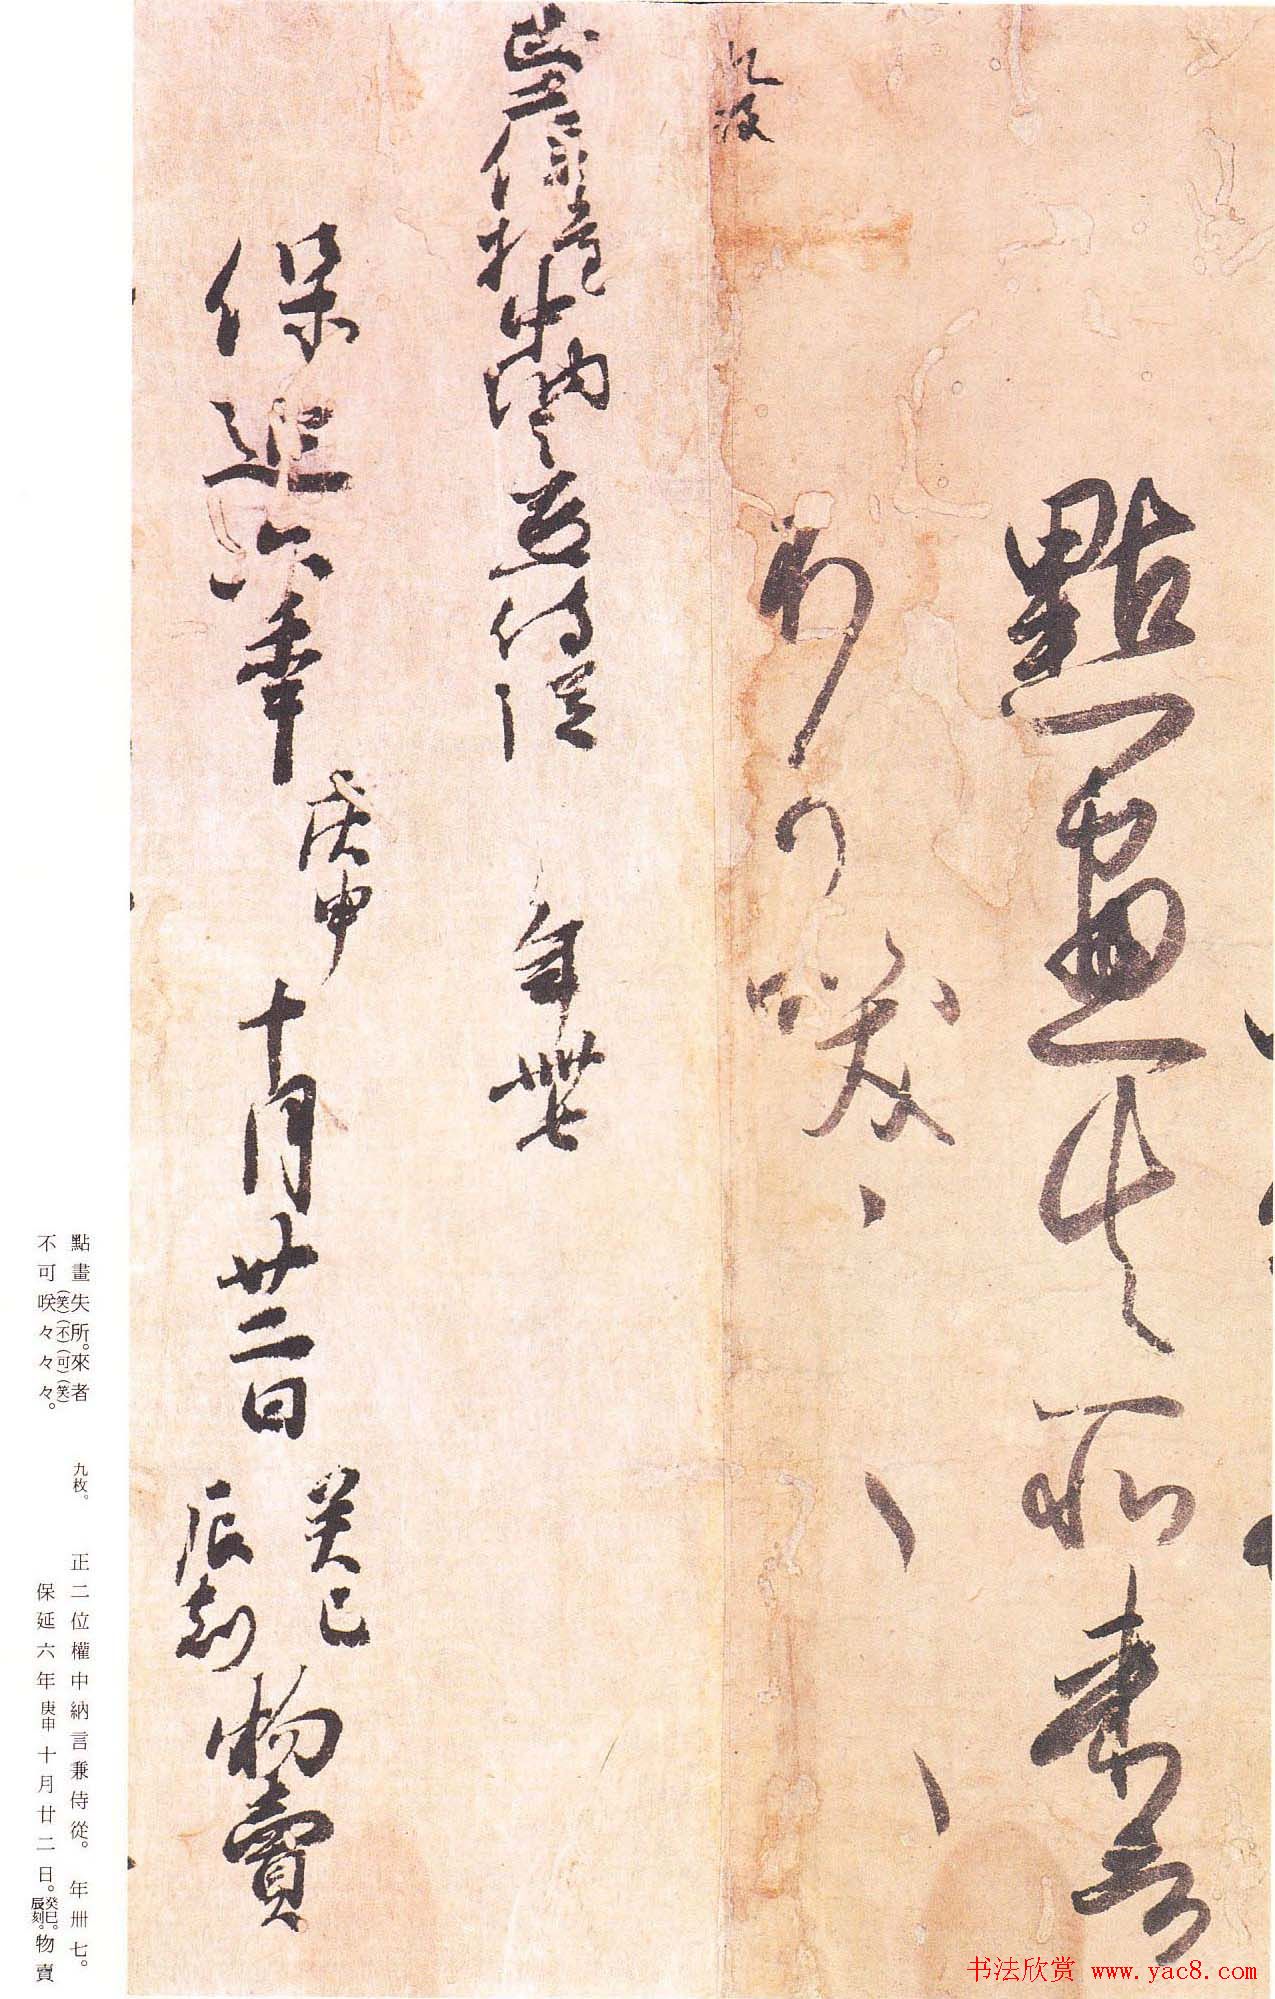 點畫失所來者
不可咲々々々
九枚
正二位權中納言兼侍從 年卌七
保延六年庚申十月廿二日癸巳辰刻物賣
點畫失所。來者
不可咲(笑)々(不)々(可)々(笑)。
九枚。
正二位權中納言兼侍從。 年卌七。
保延六年庚申十月廿二日。癸巳。辰刻。物賣
书法欣赏 www.yac8.com